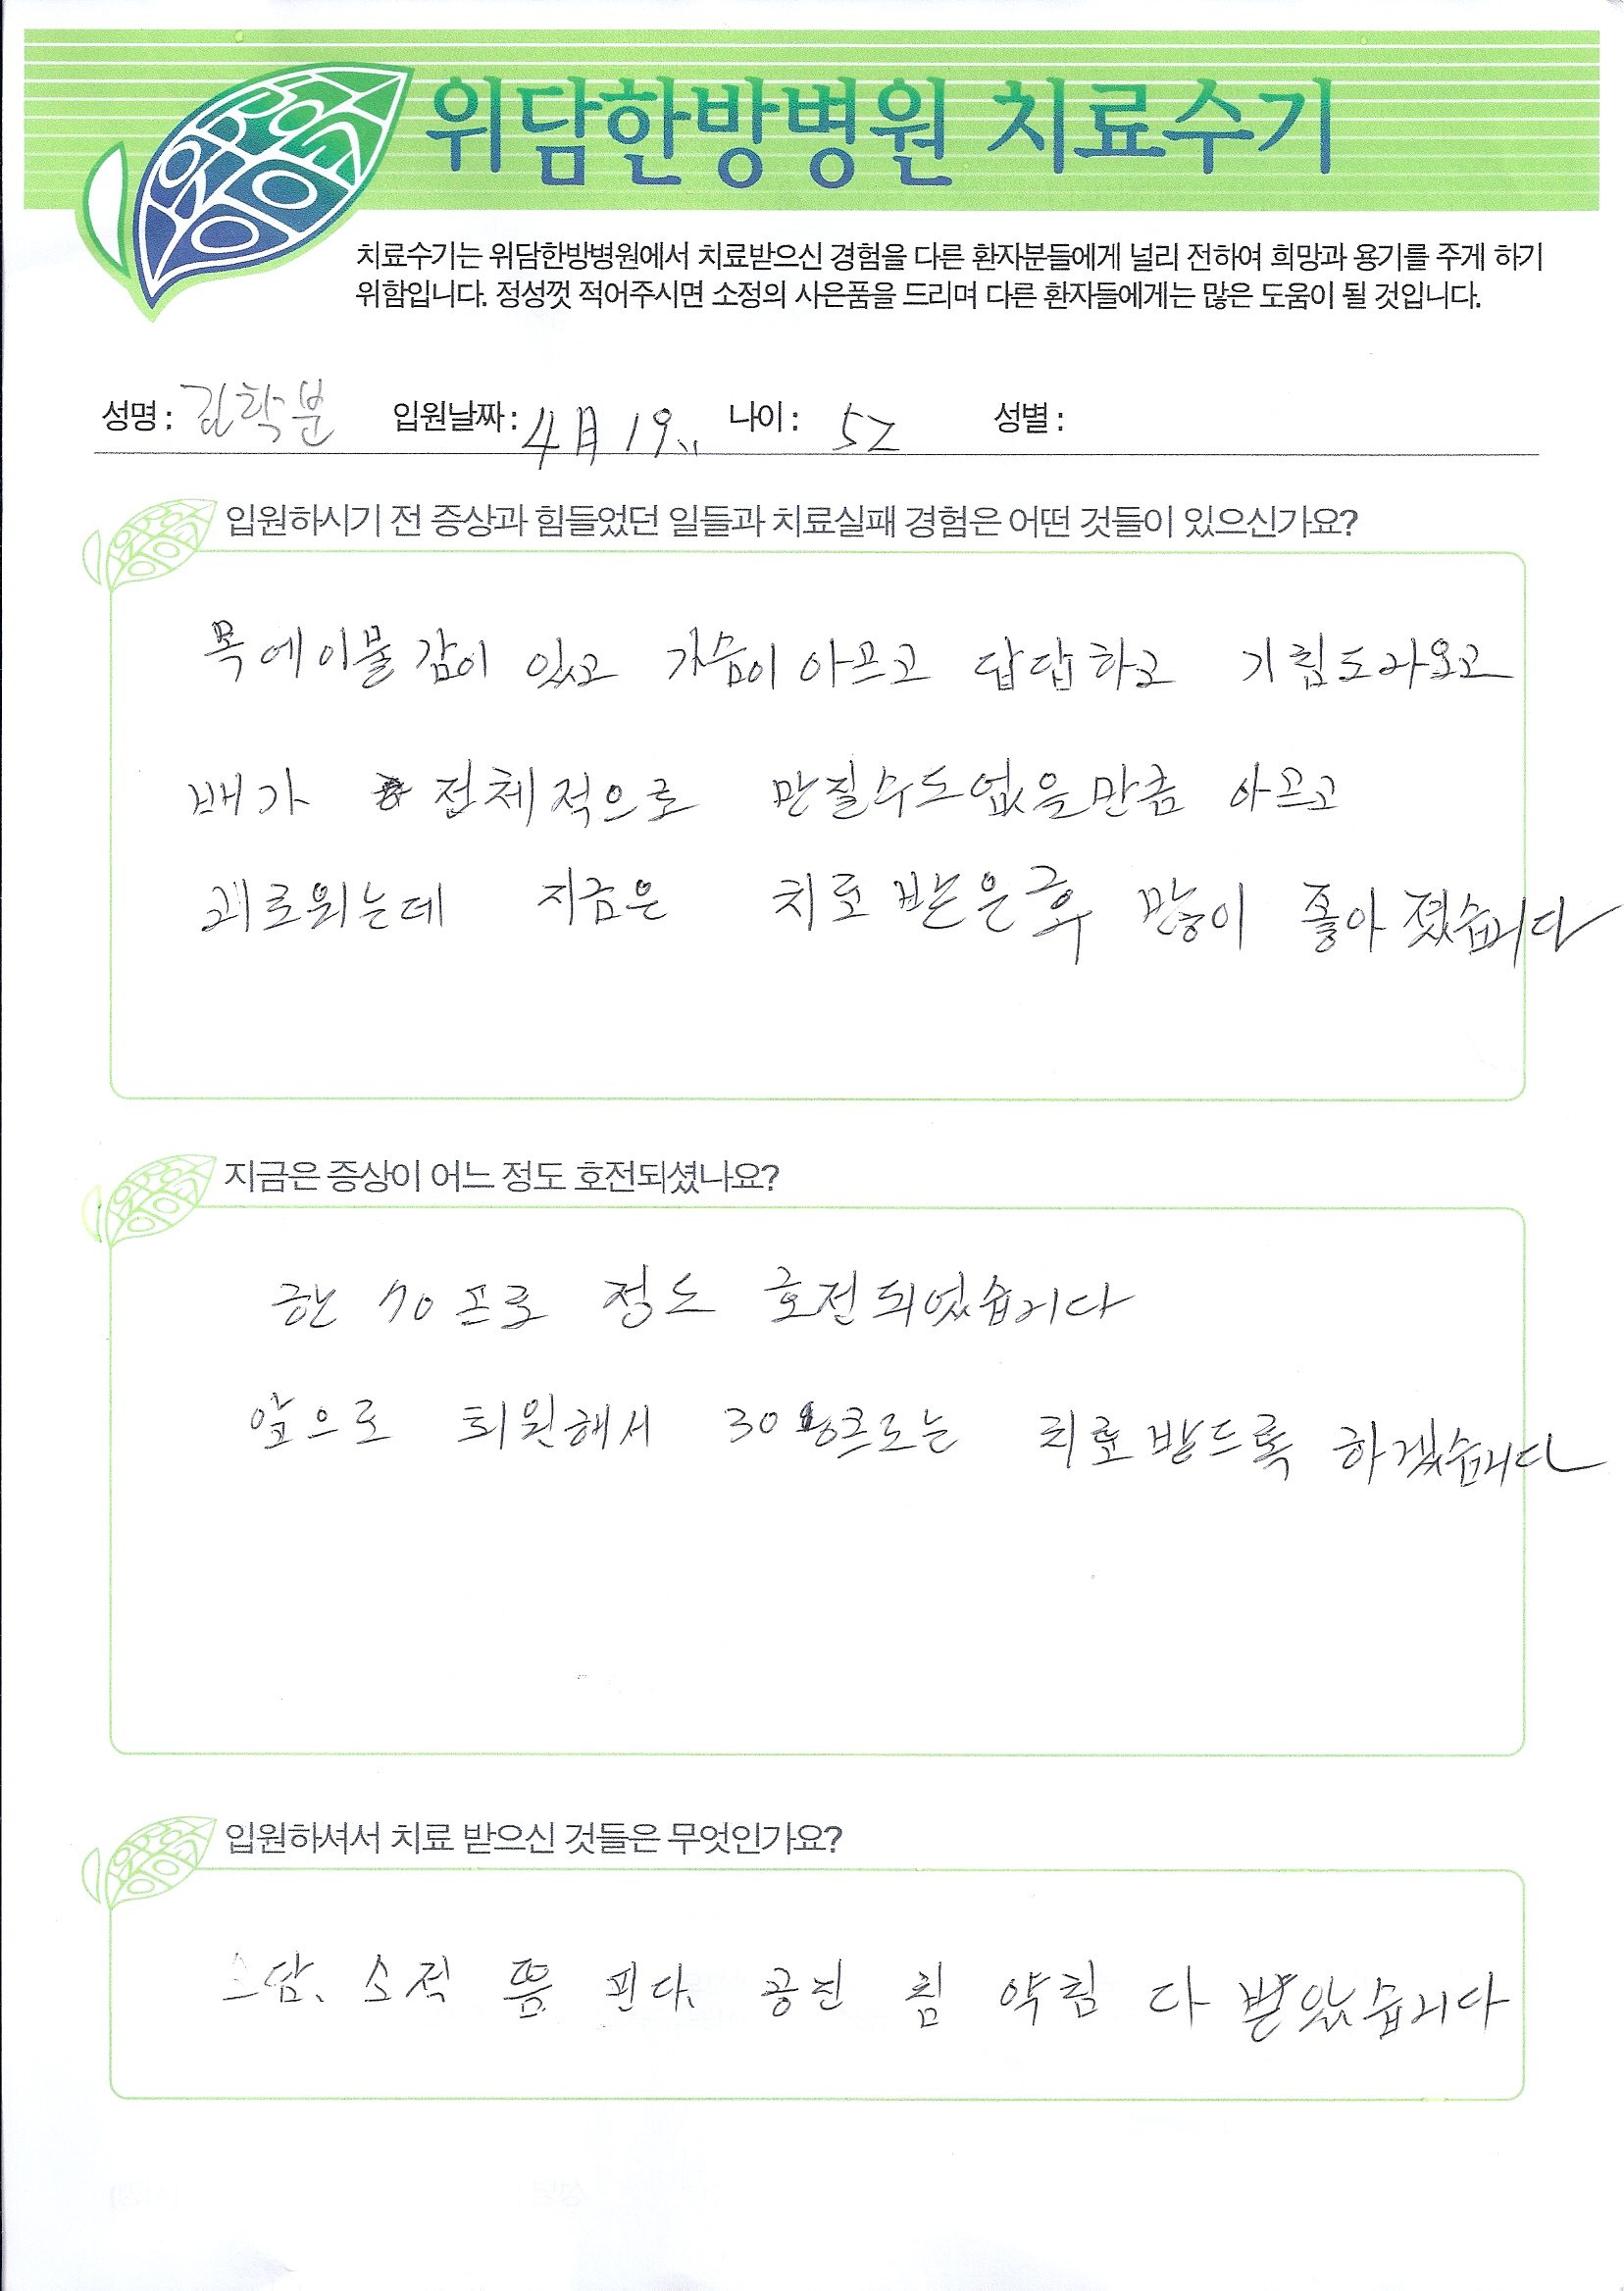 위담한방병원 치료수기
치료수기는 위담한방병원에서 치료받으신 경험을 다른 환자분들에게 널리 전하여 희망과 용기를 주게 하기
위함입니다. 정성껏 적어주시면 소정의 사은품을 드리며 다른 환자들에게는 많은 도움이 될 것입니다.
성명 : 김학분 입원날짜 : 4月 19일 나이 : 52 성별 :
입원하시기 전 증상과 힘들었던 일들과 치료실패 경험은 어떤 것들이 있으신가요?
목에이물감이 있고 가슴이 아프고 답답하고 기침도나오고
배가 전체적으로 만질수도없을만큼 아프고
괴로뫼는데 지금은 치료 받은후 많이 좋아졌습니다
지금은 증상이 어느 정도 호전되셨나요?
한 70프로 정도 호전되었습니다
앞으로 퇴원해서 30 치료받드록 하겠습니다
입원하셔서 치료 받으신 것들은 무엇인가요?
소담, 소적 뜸 핀다, 공진 침 약침 다 받았습니다